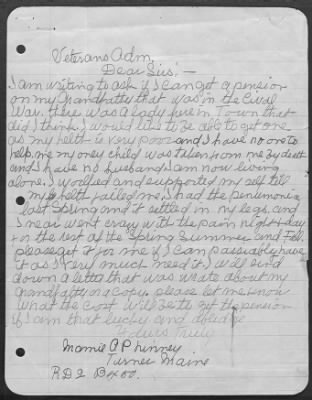 Veterans Adm.
Dear Sirs; —
I am writing to ask if I can get a pension
on my Grandfatty that was in the Civil
War. there was a lady here in Town that
did I think. I would like to be able to get one
as my helth is very poor and I have no one to
help me my oney child was taken from me by death
and I have no husband. I am now living
alone. I worked and supported my self till
my helth failled me, I had the pentimonia
last Spring and it settled in my legs, and
I near went crazy with the pain night & day
for the rest of the Spring Summer and Fall.
please get it for me if I can passiably have
it as I very much need it. I will send
down a letter that was wrote about my
Grandfatty on a Copy. please let me know
what the Cost will be to get the pension
if I am that lucky and oblidge
Yours Truly
Mamie A Phinney
Turner Maine
R.D 2 Box